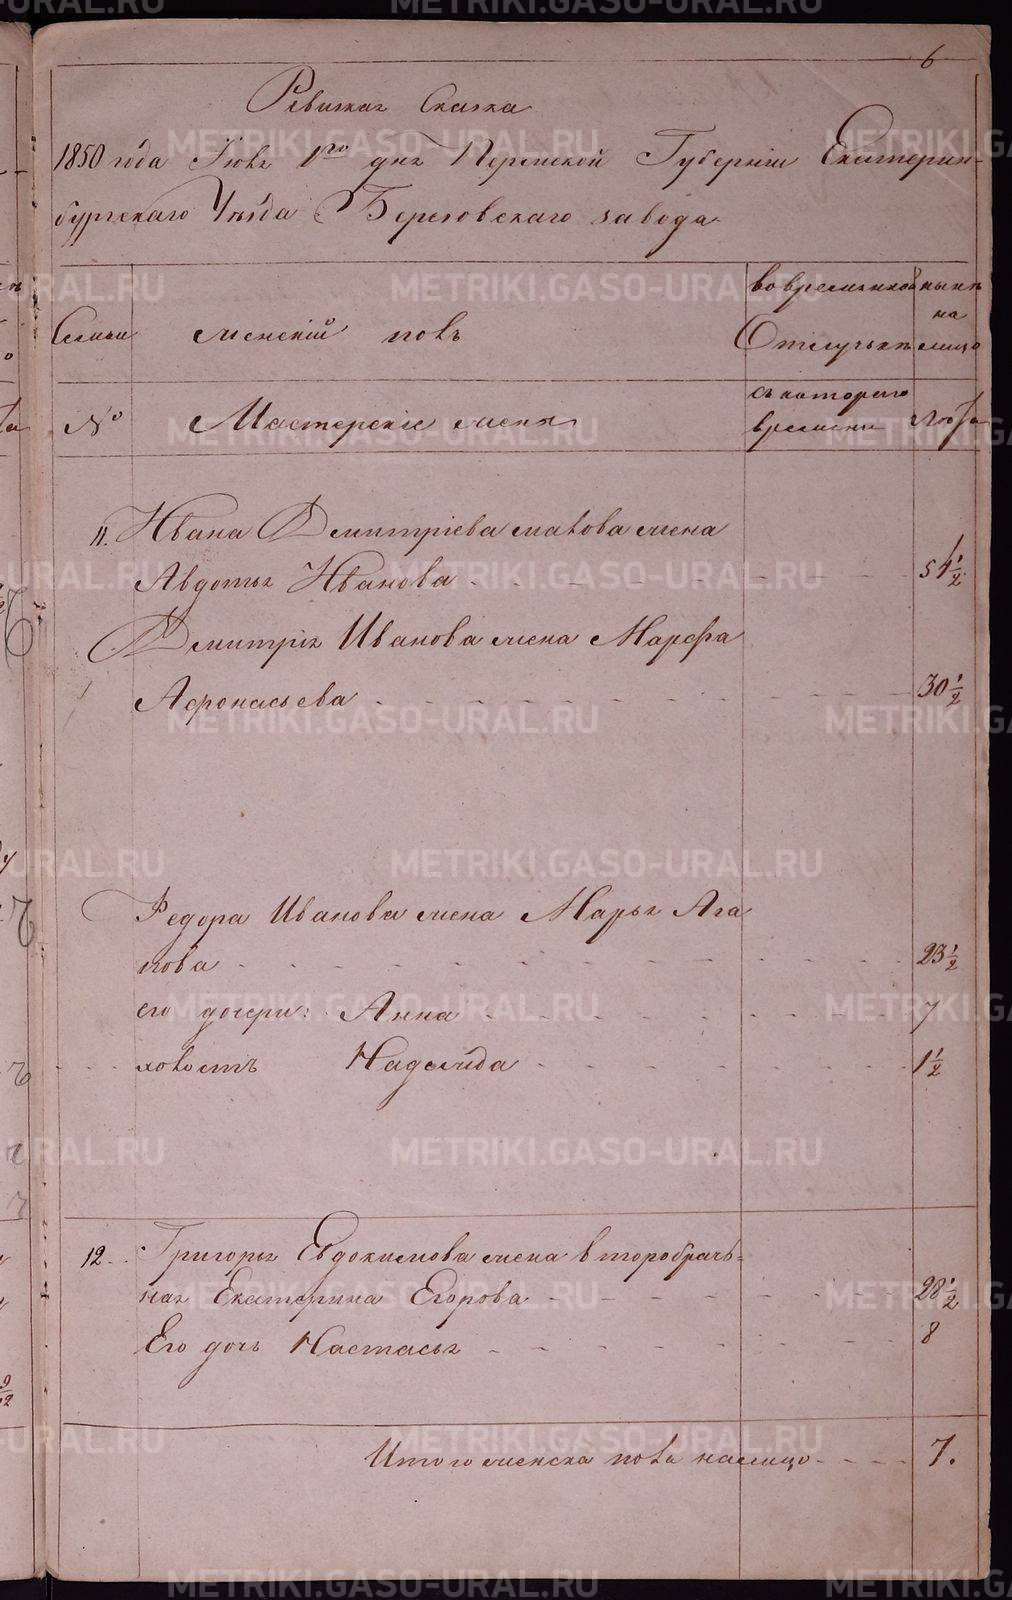 6
Ревижая Сказка
1850 года Іюня 1го дня Пермской Губерніи Екатерин-
бургскаго Уѣзда Березовскаго завода
Семьи женскій полъ во временной Отлучькѣ нынѣ на лицо
№ Мастерскіе жены съ котораго времени Лѣта
11. Ивана Дмитріева жена
Авдотья Иванова 51 1/2
Дмитрія Иванова жена Марфа
Афонасьева 30 1/2
Федора Иванова жена Марья Ага
пова 23 1/2
его дочери: Анна 7
Надежда 1 1/2
12 Григорья Евдокимова жена второбрачь-
ная Екатерина Егорова 28 1/2
Его дочь Настасья 8
Итого женска пола налицо 7.
METRIKI.GASO-URAL.RU